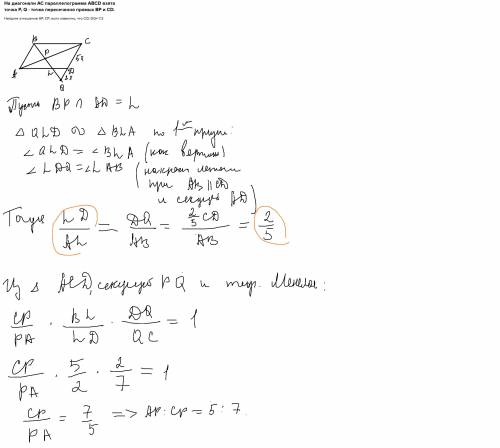 На диагонали AC параллелограмма ABCD взята
точка P, Q - точка пересечения прямых BP и CD.
Найдите отношение AP: CP, если известно, что CD: DQ= 5:2
B C
P 5x
A L D
2x
Q
Пусть BP ∩ AD = L
△ QLD ∾ △ BLA по 1 му призн:
∠QLD = ∠BLA (как вертик)
∠LDQ = ∠LAB (накрест лежащ
при AB || CD
и секущей AD)
Тогда LD/AL = DQ/AB = 2/5 CD/AB = 2/5
Из △ ACD, секущей PQ и теор. Менелая:
CP/PA · BL/LD · DQ/QC = 1
CP/PA · 5/2 · 2/7 = 1
CP/PA = 7/5 => AP : CP = 5 : 7.